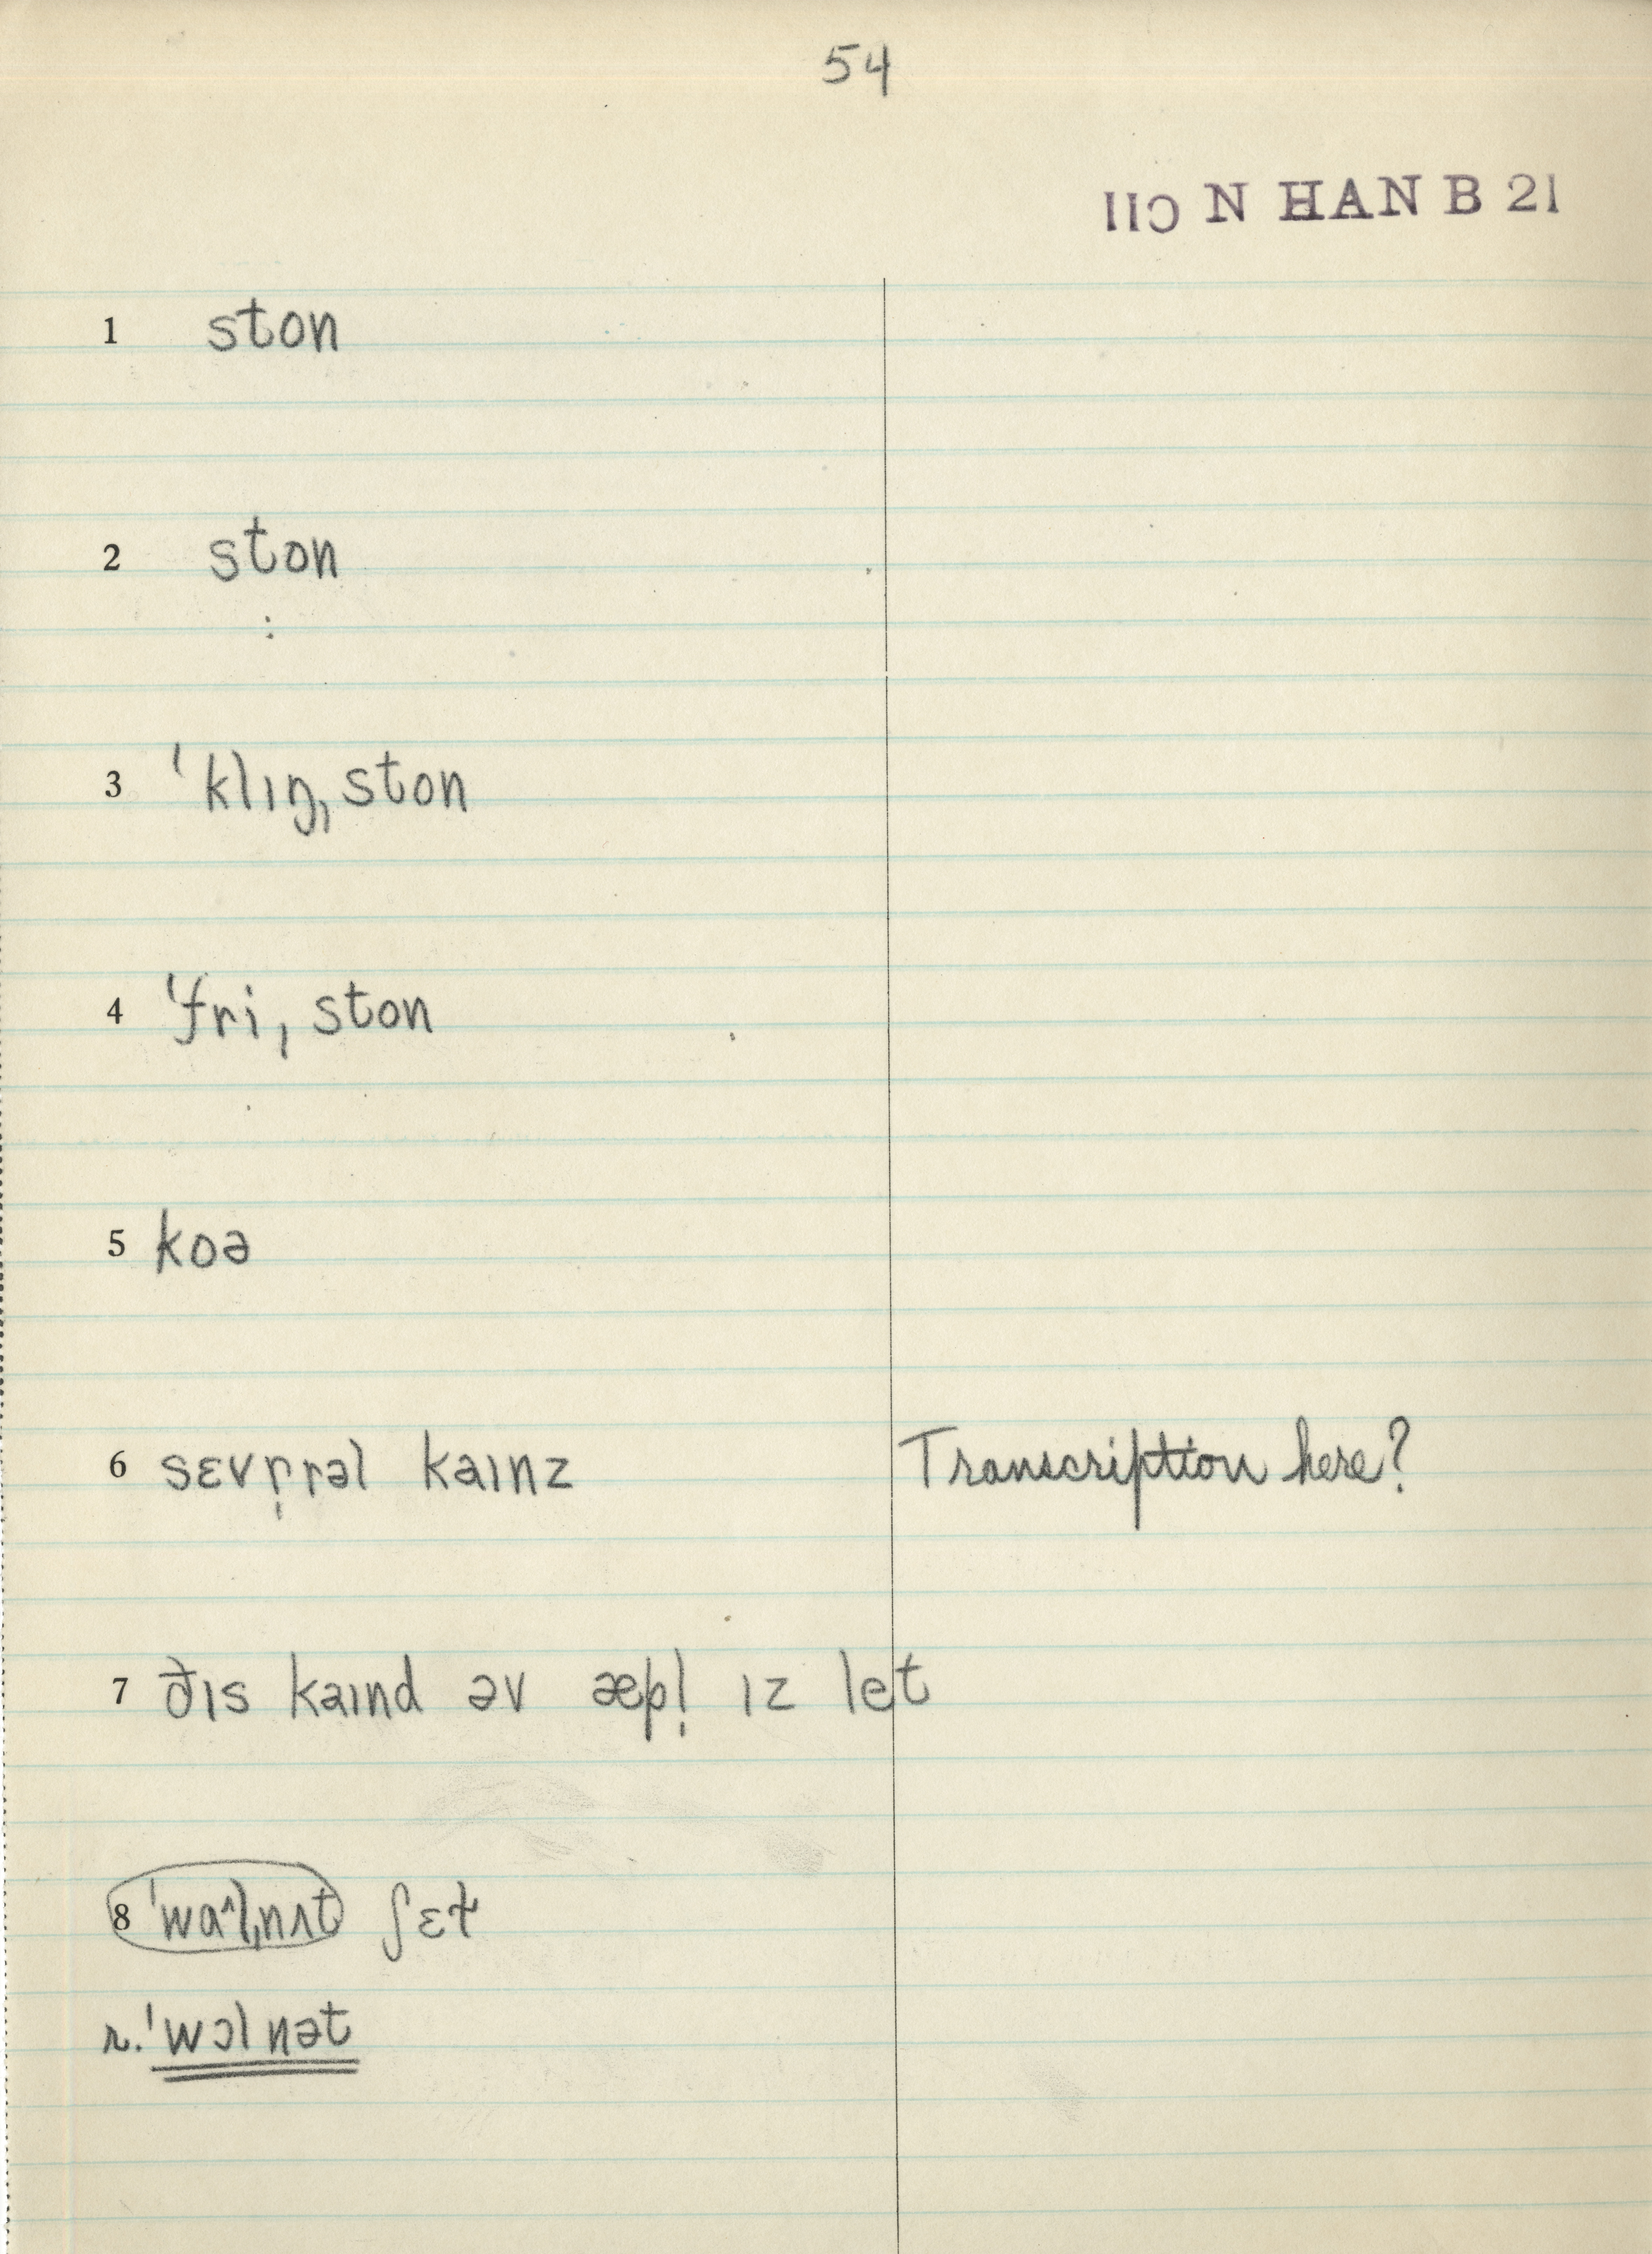 54
IIC N HAN B 21
1 ston
2 ston
:
3 ˈklɪŋˌston
4 ˈfriˌston
5 koə
6 sɛvr̩rəl kaɪnz Transcription here?
7 ðɪs kaɪnd əv æpl̩ ɪz let
8 ˈwɑ˄lˌnʌt ʃɛɫ
r. ˈwɔlnət